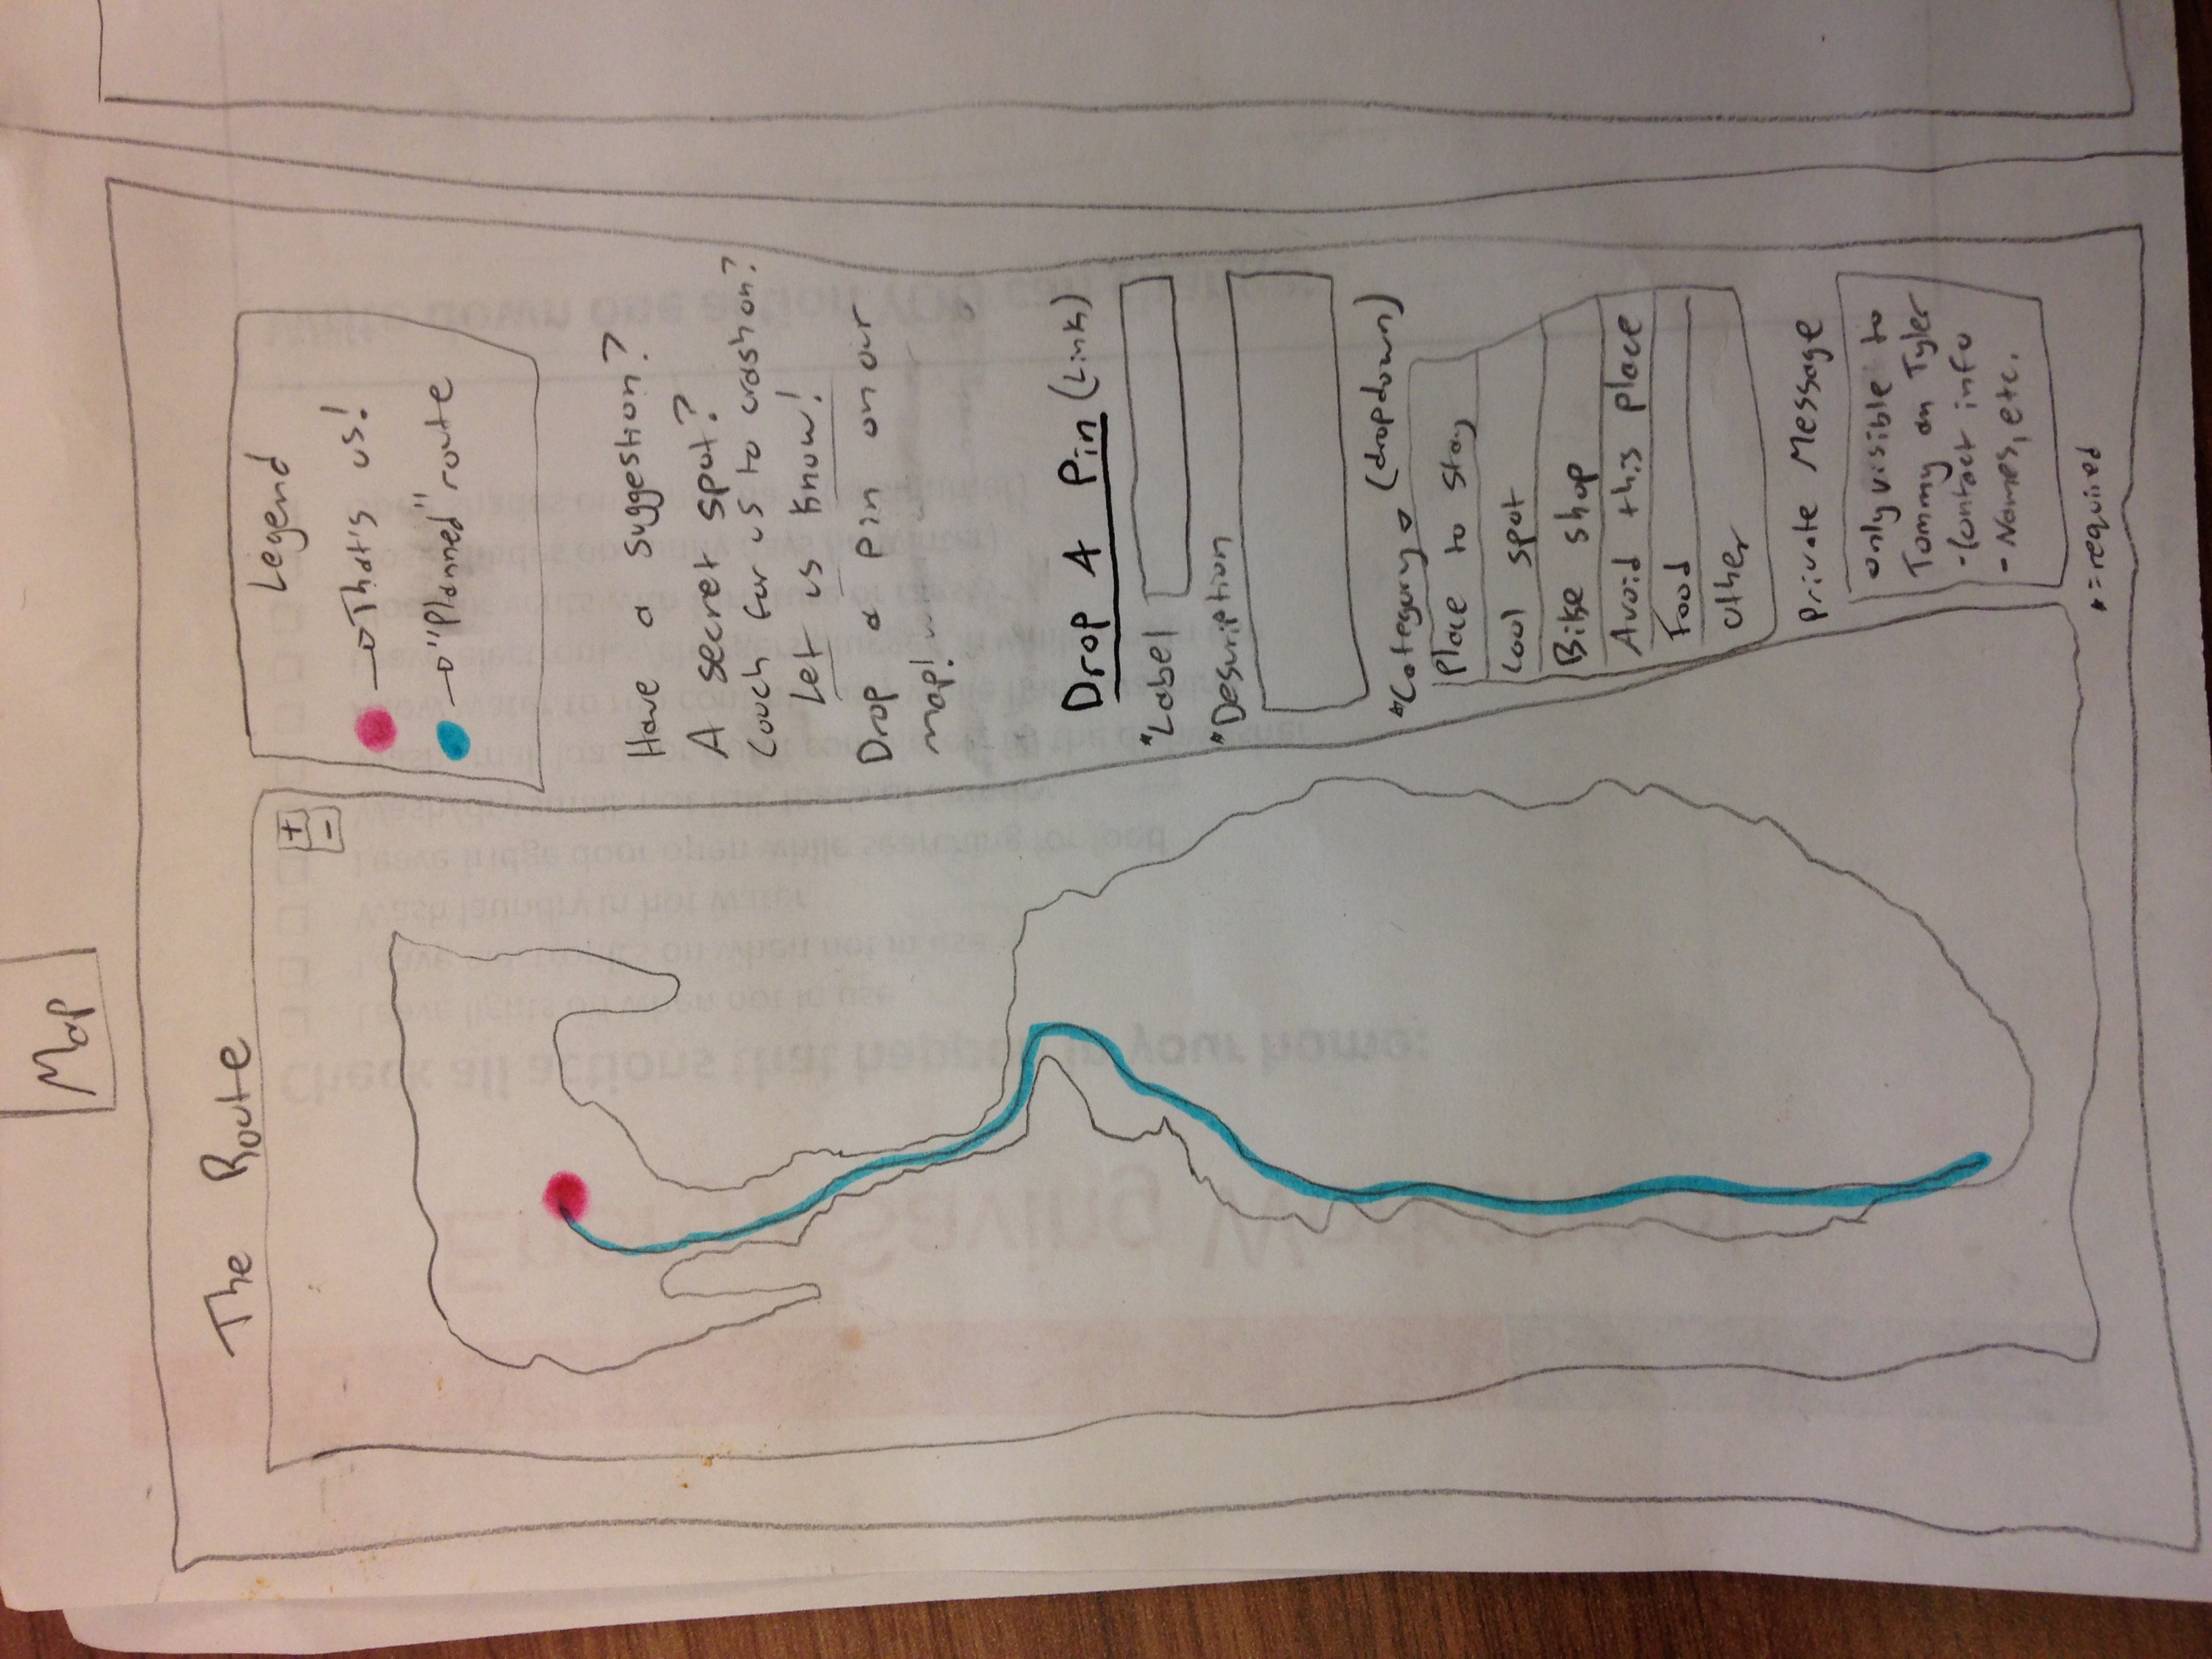 Map
The Route
+
-
Legend
That's us!
"Planned" route
Have a suggestion?
A secret spot?
Couch for us to crash on?
Let us know!
Drop a pin on our
map!
Drop A Pin (Link)
*Label
*Description
*Category (dropdown)
Place to stay
Cool spot
Bike shop
Avoid this place
Food
other
Private Message
only visible to
Tommy an Tyler
-Contact info
- Names, etc.
* = required